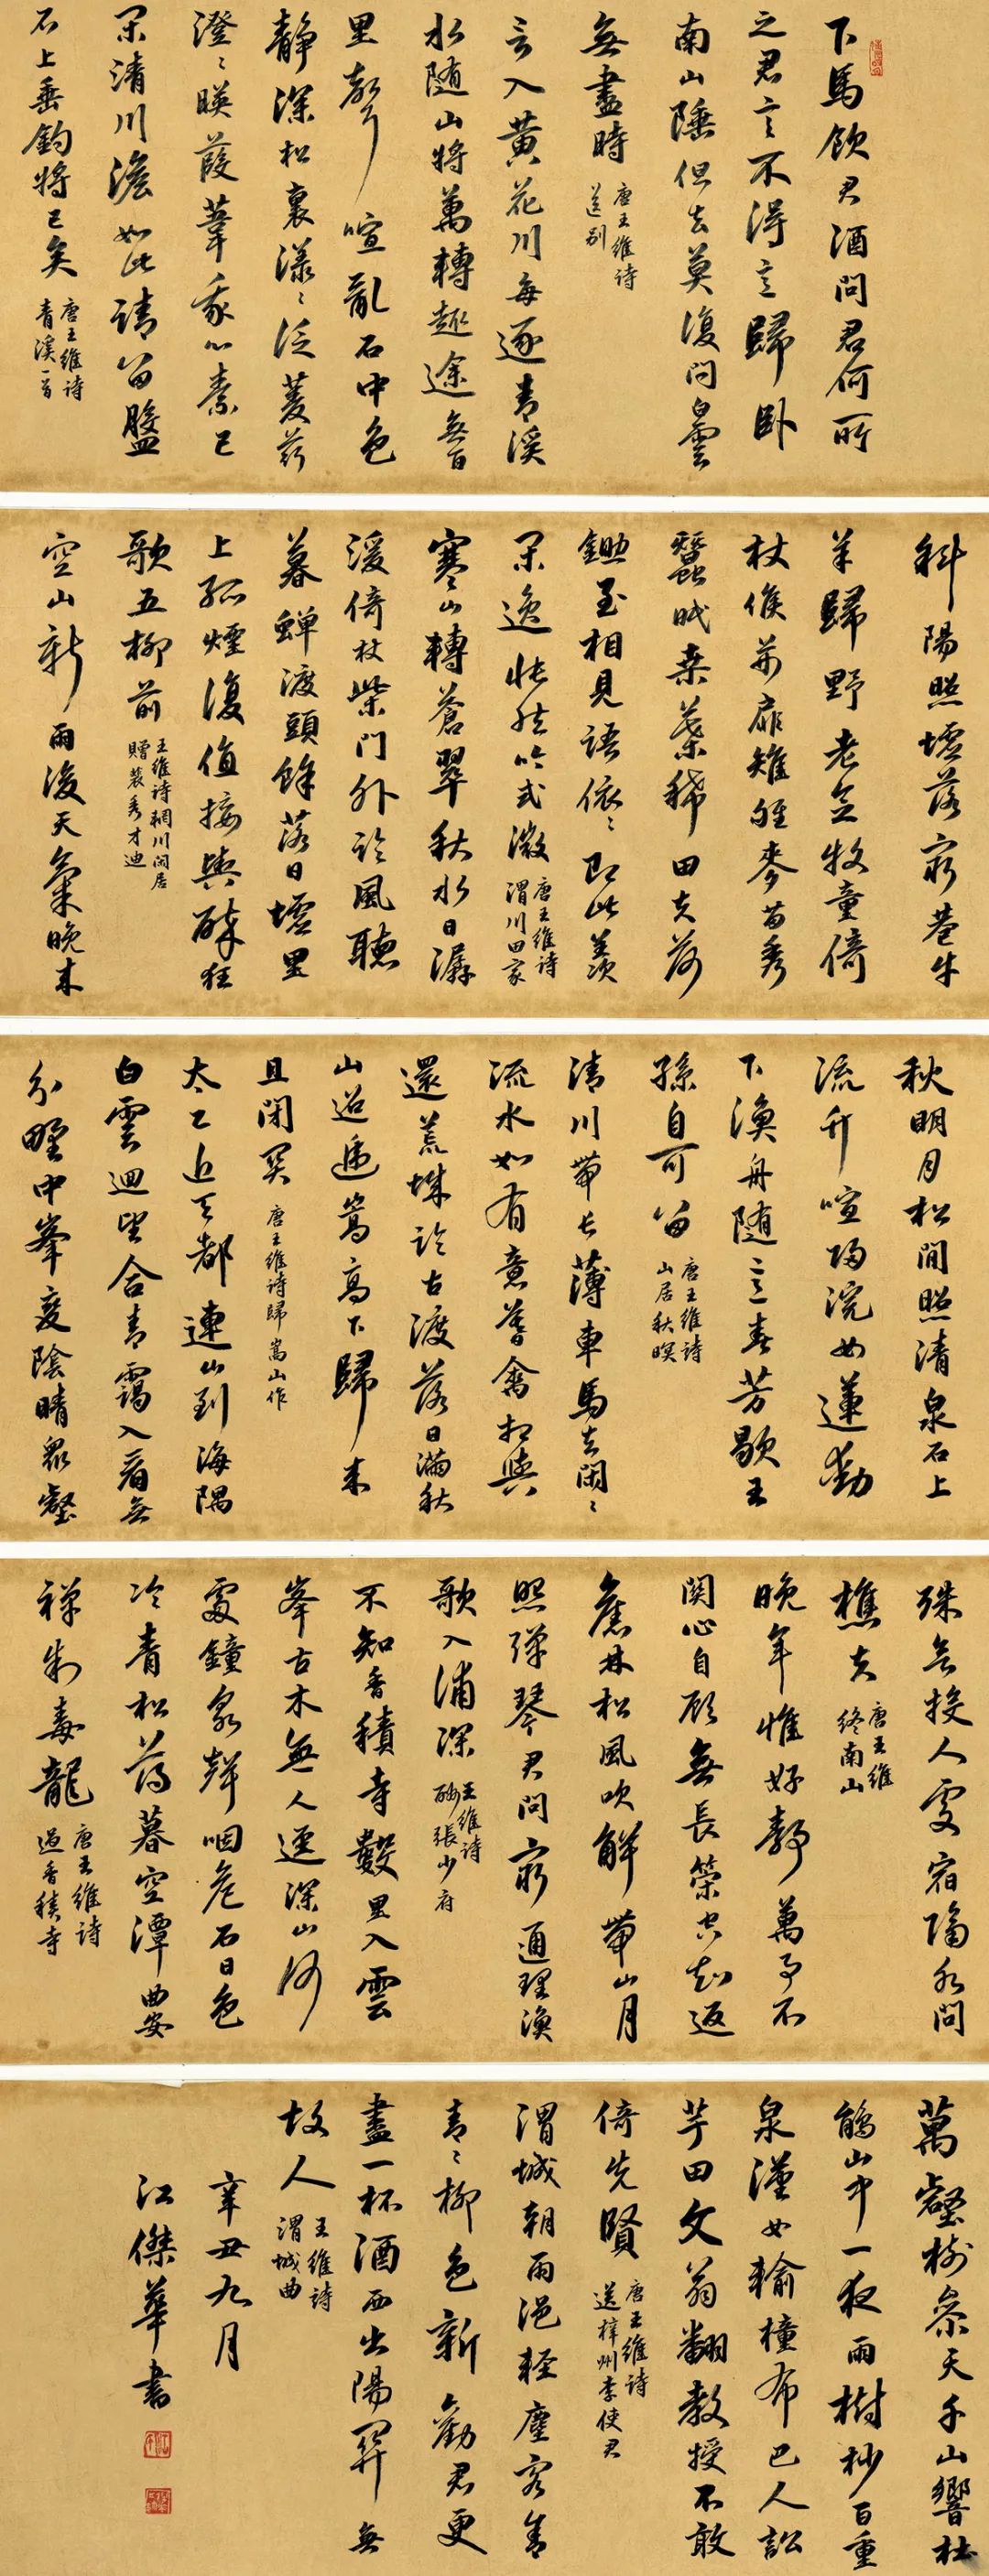 下馬飲君酒問君何所
之君言不得意歸卧
南山陲但去莫復問白雲
無盡時
唐王維詩
送别
言入黄花川每逐青溪
水随山將萬轉趣途無百
里聲喧亂石中色
静深松裏漾〻泛菱荇
澄〻映葭葦我心素已
閑清川澹如此請留盤
石上垂釣將已矣
唐王維詩
青溪一首
斜陽照墟落窮巷牛
羊歸野老念牧童倚
杖候荆扉雉雊麥苗秀
蠶眠桑葉稀田夫荷
鋤至相見語依〻即此羨
閑逸悵然吟式微
唐王維詩
渭川田家
寒山轉蒼翠秋水日潺
湲倚杖柴門外臨風聽
暮蟬渡頭餘落日墟里
上孤煙復值接輿醉狂
歌五柳前
王維詩輞川閑居
贈裴秀才迪
空山新雨後天氣晚来
秋明月松間照清泉石上
流竹喧歸浣女蓮動
下漁舟随意春芳歇王
孫自可留
唐王維詩
山居秋暝
清川帶長薄車馬去閑〻
流水如有意暮禽相與
還荒城臨古渡落日滿秋
山迢遞嵩高下歸来
且閉關
唐王維詩歸嵩山作
太乙近天都連山到海隅
白雲迴望合青靄入看無
分野中峯變陰晴衆壑
殊欲投人處宿隔水問
樵夫
唐王維
終南山
晚年惟好静萬事不
關心自顧無長策空知返
舊林松風吹解帶山月
照彈琴君問窮通理漁
歌入浦深
王維詩
酬張少府
不知香積寺數里入雲
峯古木無人逕深山何
處鐘泉聲咽危石日色
冷青松薄暮空潭曲安
禪制毒龍
唐王維詩
過香積寺
萬壑樹参天千山響杜
鵑山中一夜雨樹杪百重
泉漢女輸橦布巴人訟
芋田文翁翻教授不敢
倚先賢
唐王維詩
送梓州李使君
渭城朝雨浥輕塵客舍
青〻柳色新勸君更
盡一杯酒西出陽關無
故人
王維詩
渭城曲
辛丑九月
江傑華書